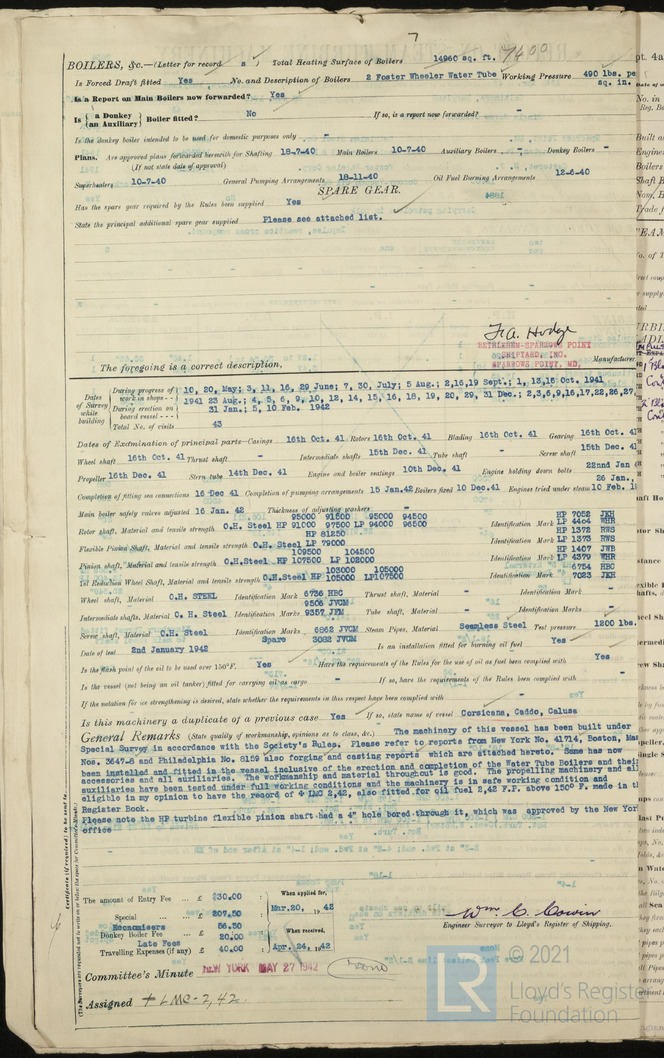 7
BOILERS, &c.—(Letter for record s ) Total Heating Surface of Boilers 14960 sq. ft. 7400
Is Forced Draft fitted Yes No. and Description of Boilers 2 Foster Wheeler Water Tube Working Pressure 490 lbs. pe
sq. in.
Is a Report on Main Boilers now forwarded? Yes
Is { a Donkey / an Auxiliary } Boiler fitted? No If so, is a report now forwarded? -
Is the donkey boiler intended to be used for domestic purposes only -
Plans. Are approved plans forwarded herewith for Shafting 18-7-40 Main Boilers 10-7-40 Auxiliary Boilers - Donkey Boilers -
(If not state date of approval)
Superheaters 10-7-40 General Pumping Arrangements 18-11-40 Oil Fuel Burning Arrangements 12-6-40
SPARE GEAR.
Has the spare gear required by the Rules been supplied Yes
State the principal additional spare gear supplied Please see attached list.
F.A. Hodge
BETHLEHEM-SPARROWS POINT
SHIPYARD, INC.
SPARROWS POINT, MD.
The foregoing is a correct description, Manufacturer
Dates of Survey while building
During progress of work in shops - - 10, 20, May; 3, 11, 16, 29 June; 7, 30, July; 5 Aug.; 2,16,19 Sept.; 1, 13,16 Oct. 1941
During erection on board vessel - - - 1941 23 Aug.; 4, 5, 6, 9, 10, 12, 14, 15, 16, 18, 19, 20, 29, 31 Dec.; 2,3,6,9,16,17,22,26,27,
31 Jan.; 5, 10 Feb. 1942
Total No. of visits 43
Dates of Examination of principal parts—Casings 16th Oct. 41 Rotors 16th Oct. 41 Blading 16th Oct. 41 Gearing 16th Oct. 41
Wheel shaft 16th Oct. 41 Thrust shaft - Intermediate shafts 15th Dec. 41 Tube shaft - Screw shaft 15th Dec. 41
Propeller 16th Dec. 41 Stern tube 14th Dec. 41 Engine and boiler seatings 10th Dec. 41 Engine holding down bolts 22nnd Jan
26 Jan.;
Completion of fitting sea connections 16 Dec 41 Completion of pumping arrangements 15 Jan.42 Boilers fixed 10 Dec.41 Engines tried under steam 10 Feb.
Main boiler safety valves adjusted 16 Jan. 42 Thickness of adjusting washers -
95000 91500 95000 94500 HP 7052 JKH
Rotor shaft, Material and tensile strength O.H. Steel HP 91000 97500 LP 94000 96500 Identification Mark LP 4464 WHR
HP 81250 HP 1372 RWS
Flexible Pinion Shaft, Material and tensile strength O.H. Steel LP 79000 Identification Mark LP 1373 RWS
109500 104500 HP 1407 JWB
Pinion shaft, Material and tensile strength O.H.Steel HP 107500 LP 102000 Identification Mark LP 4379 WHR
103000 105000 6754 HBC
1st Reduction Wheel Shaft, Material and tensile strength O.H.Steel HP 105000 LP107500 Identification Mark 7023 JKH
Wheel shaft, Material O.H. STEEL Identification Mark 6736 HBC Thrust shaft, Material - Identification Mark -
9506 JVCM
Intermediate shafts, Material O. H. Steel Identification Marks 9357 JFM Tube shaft, Material - Identification Marks -
Screw shaft, Material O.H. Steel Identification Marks 6862 JVCM Steam Pipes, Material Seamless Steel Test pressure 1200 lbs.
Spare 3082 JVCM
Date of test 2nd January 1942 Is an installation fitted for burning oil fuel Yes
Is the flash point of the oil to be used over 150°F. Yes Have the requirements of the Rules for the use of oil as fuel been complied with Yes
Is the vessel (not being an oil tanker) fitted for carrying oil as cargo - If so, have the requirements of the Rules been complied with -
If the notation for ice strengthening is desired, state whether the requirements in this respect have been complied with -
Is this machinery a duplicate of a previous case Yes If so, state name of vessel Corsicana, Caddo, Calusa
General Remarks (State quality of workmanship, opinions as to class, &c.) The machinery of this vessel has been built under
Special Survey in accordance with the Society's Rules. Please refer to reports from New York No. 41714, Boston, Mas
Nos. 3647-8 and Philadelphia No. 8159 also forging and casting reports which are attached hereto. Same has now
been installed and fitted in the vessel inclusive of the erection and completion of the Water Tube Boilers and their
accessories and all auxiliaries. The workmanship and material throughout is good. The propelling machinery and all
auxiliaries have been tested under full working conditions and the machinery is in safe working condition and
eligible in my opinion to have the record of + LMC 2,42, also fitted for oil fuel 2,42 F.P. above 150° F. made in th
Register Book.
Please note the HP turbine flexible pinion shaft had a 4" hole bored through it, which was approved by the New Yor
office
The amount of Entry Fee .. £ $30.00 : When applied for,
Special .. £ 207.50 : Mar.20, 1942
Economisers 56.50
Donkey Boiler Fee .. £ 20.00 : When received,
Late Fees
Travelling Expenses (if any) £ 40.00 : Apr. 24, 1942
Wm. C. Cowin
Engineer Surveyor to Lloyd's Register of Shipping.
Committee's Minute NEW YORK MAY 27 1942
Assigned + LMC - 2,42.
© 2021
LR
Lloyd's Register
Foundation